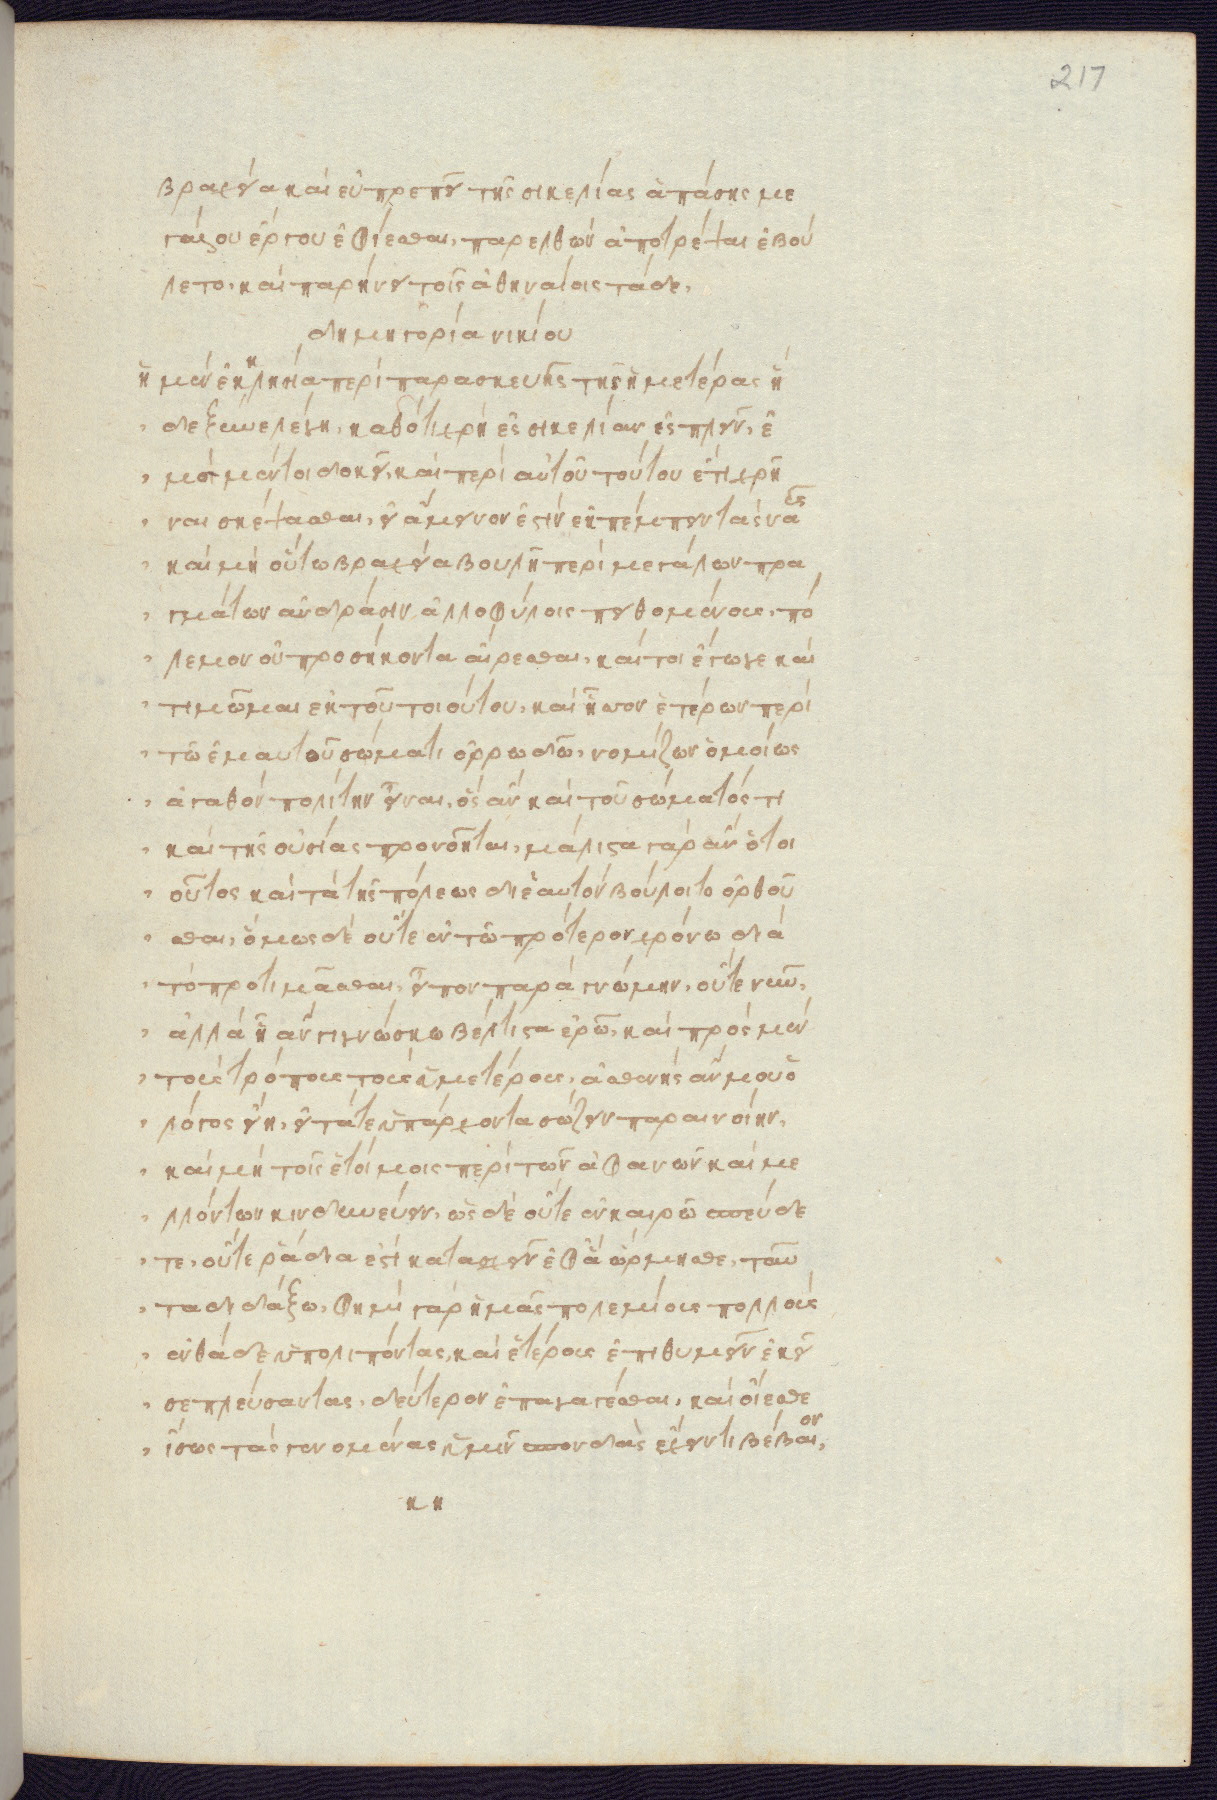 217
βραχεία καὶ εὐπρεπεῖ τῆς σικελίας ἁπάσης με
γάλου ἔργου ἐφίεσθαι, παρελθὼν ἀποτρέψαι ἐβού
λετο, καὶ παρήνει τοῖς ἀθηναίοις τάδε,
δημηγορία νικίου
ἡ μὲν ἐκκλησία περὶ παρασκευῆς τῆς ἡμετέρας ἥ
δε ξυνελέγη, καθότι χρὴ ἐς σικελίαν ἐσπλεῖν, ἐ
μοὶ μέντοι δοκεῖ, καὶ περὶ αὐτοῦ τούτου ἔτι χρῆ
ναι σκέψασθαι, εἰ ἄμεινον ἐστὶν ἐκπέμπειν τὰς ναῦς
καὶ μὴ οὕτω βραχεία βουλῆ περὶ μεγάλων πρα
γμάτων ἀνδράσιν ἀλλοφύλοις πειθομένους, πό
λεμον οὐ προσήκοντα αἴρεσθαι, καίτοι ἔγωγε καὶ
τιμῶμαι ἐκ τοῦ τοιούτου, καὶ ἧσσον ἑτέρων περὶ
τῶ ἐμαυτοῦ σώματι ὀρρωδῶ, νομίζων ὁμοίως
ἀγαθὸν πολίτην εἶναι, ὃς ἂν καὶ τοῦ σώματός τι
καὶ τῆς οὐσίας προνοῆται, μάλιστα γὰρ ἂν ὁ τοι
οῦτος καὶ τὰ τῆς πόλεως δι' ἑαυτὸν βούλοιτο ὀρθοῦ
σθαι, ὅμως δὲ οὔτε ἐν τῶ πρότερον χρόνω διὰ
τὸ προτιμᾶσθαι, εἶπον παρὰ γνώμην, οὔτε νῦν,
ἀλλὰ ἧ ἂν γιγνώσκω βέλτιστα ἐρῶ, καὶ πρὸς μὲν
τοὺς τρόπους τοὺς ἡμετέρους, ἀσθενὴς ἄν μου ὁ
λόγος εἴη, εἰ τά τε ὑπάρχοντα σώζειν παραινοίην,
καὶ μὴ τοῖς ἑτοίμοις περὶ τῶν ἀφανῶν καὶ με
λλόντων κινδυνεύειν, ὡς δὲ οὔτε ἐν καιρῶ σπεύδε
τε, οὔτε ῥάδια ἐστὶ κατασχεῖν ἐφ' ἃ ὥρμησθε, ταῦ
τα διδάξω, φημὶ γὰρ ἡμᾶς πολεμίους πολλοὺς
ἐνθάδε ὑπολιπόντας, καὶ ἑτέρους ἐπιθυμεῖν ἐκεῖ
σε πλεύσαντας, δεύτερον ἐπαγαγέσθαι, καὶ οἴεσθε
ἴσως τὰς γενομένας ὑμῖν σπονδὰς ἔχειν τι βέβαιον,
κκ